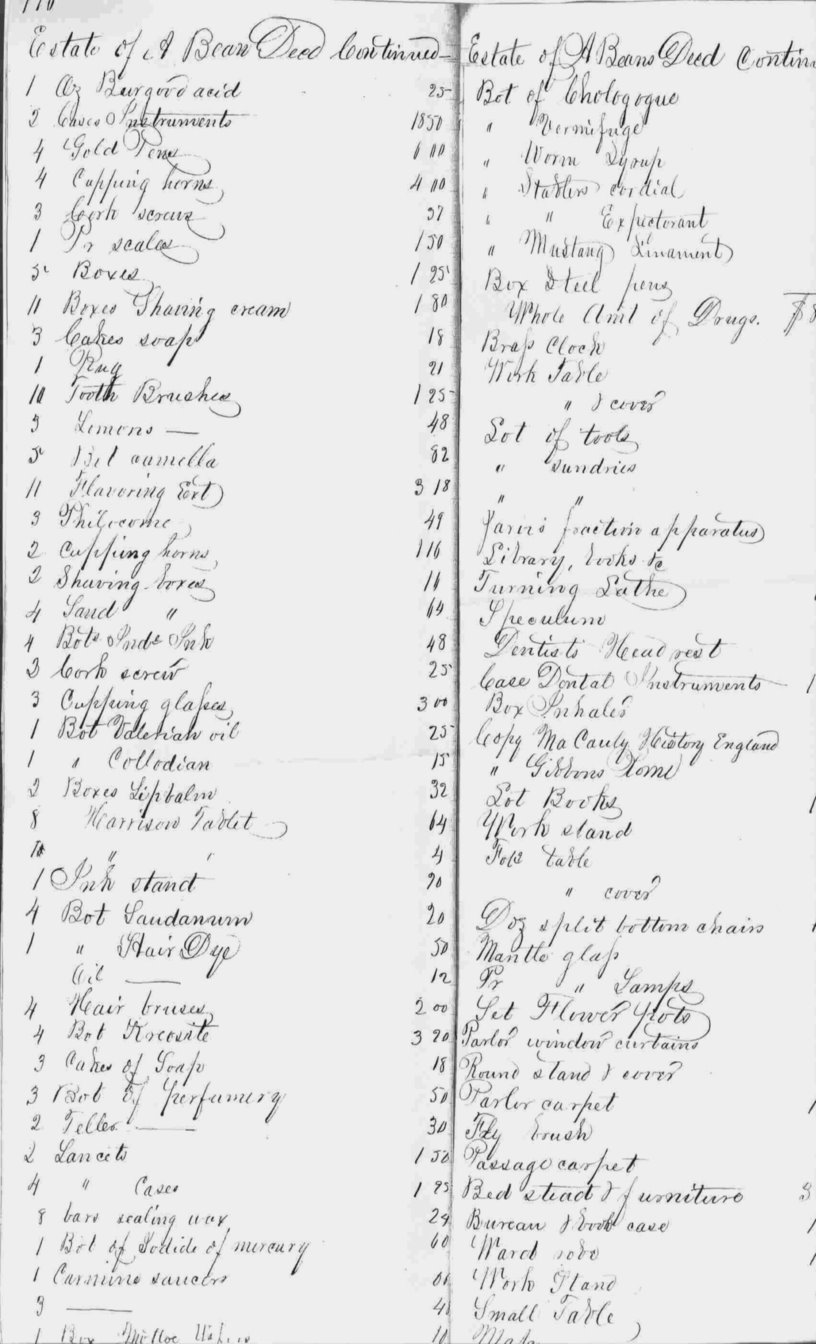 110
Estate of A Bean Deed Continued
1 Oz Burgood acid 25
2 Cases Instruments 18 50
4 Gold Pens 6 00
4 Cupping horns 4 00
3 Cork screws 37
1 Pr scales 1 50
5 Boxes 1 25
11 Boxes Shaving cream 1 80
3 Cakes soap 18
1 Rug 21
10 Tooth Brushes 1 25
3 Lemons — 48
5 82
11 Flavoring Ext 3 18
3 Philocome 49
2 Cupping horns 1 16
2 Shaving boxes 16
4 Sand " 64
4 Bots Inde Ink 48
3 Cork screw 25
3 Cupping glasses 3 00
1 Bot Valerian oil 25
1 " Collodian 15
2 Boxes Lipbalm 32
8 Harrison Tablet 64
" " 4
1 Ink stand 20
4 Bot Laudanum 20
1 " Hair Dye 50
Oil — 12
4 Hair bruses 2 00
4 Bot Kreosite 3 20
3 Cakes of Soap 18
3 Bot of perfumery 50
2 — 30
2 Lancets 1 50
4 " Cases 1 25
8 bars sealing wax 24
1 Bot of Iodide of mercury 60
1 Carmine saucers
3 —
1 Box 10
Estate of A Beans Deed Contin
Bot of Chologogue
" Vermifuge
" Worm Syrup
" Stablers cordial
" " Expectorant
" Mustang Linament
Box Steel pens
Whole Amt of Drugs. $8
Brass Clock
Work Table
" & cover
Lot of tools
" sundries
" "
Jarvis fraction apparatus
Library, books &c
Turning Lathe
Speculum
Dentists Head rest
Case Dental Instruments 1
Box Inhaler
Copy MaCauly History England
" Gibbons Rome
Lot Books 1
Work stand
table
" cover
Doz split bottom chairs
Mantle glass
Pr " Lamps
Set Flower pots
Parlor window curtains
Round stand & cover
Parlor carpet 1
Fly brush
Passage carpet
Bed stead & furniture 3
Bureau & book case 1
Ward robe 1
Work Stand
Small Table